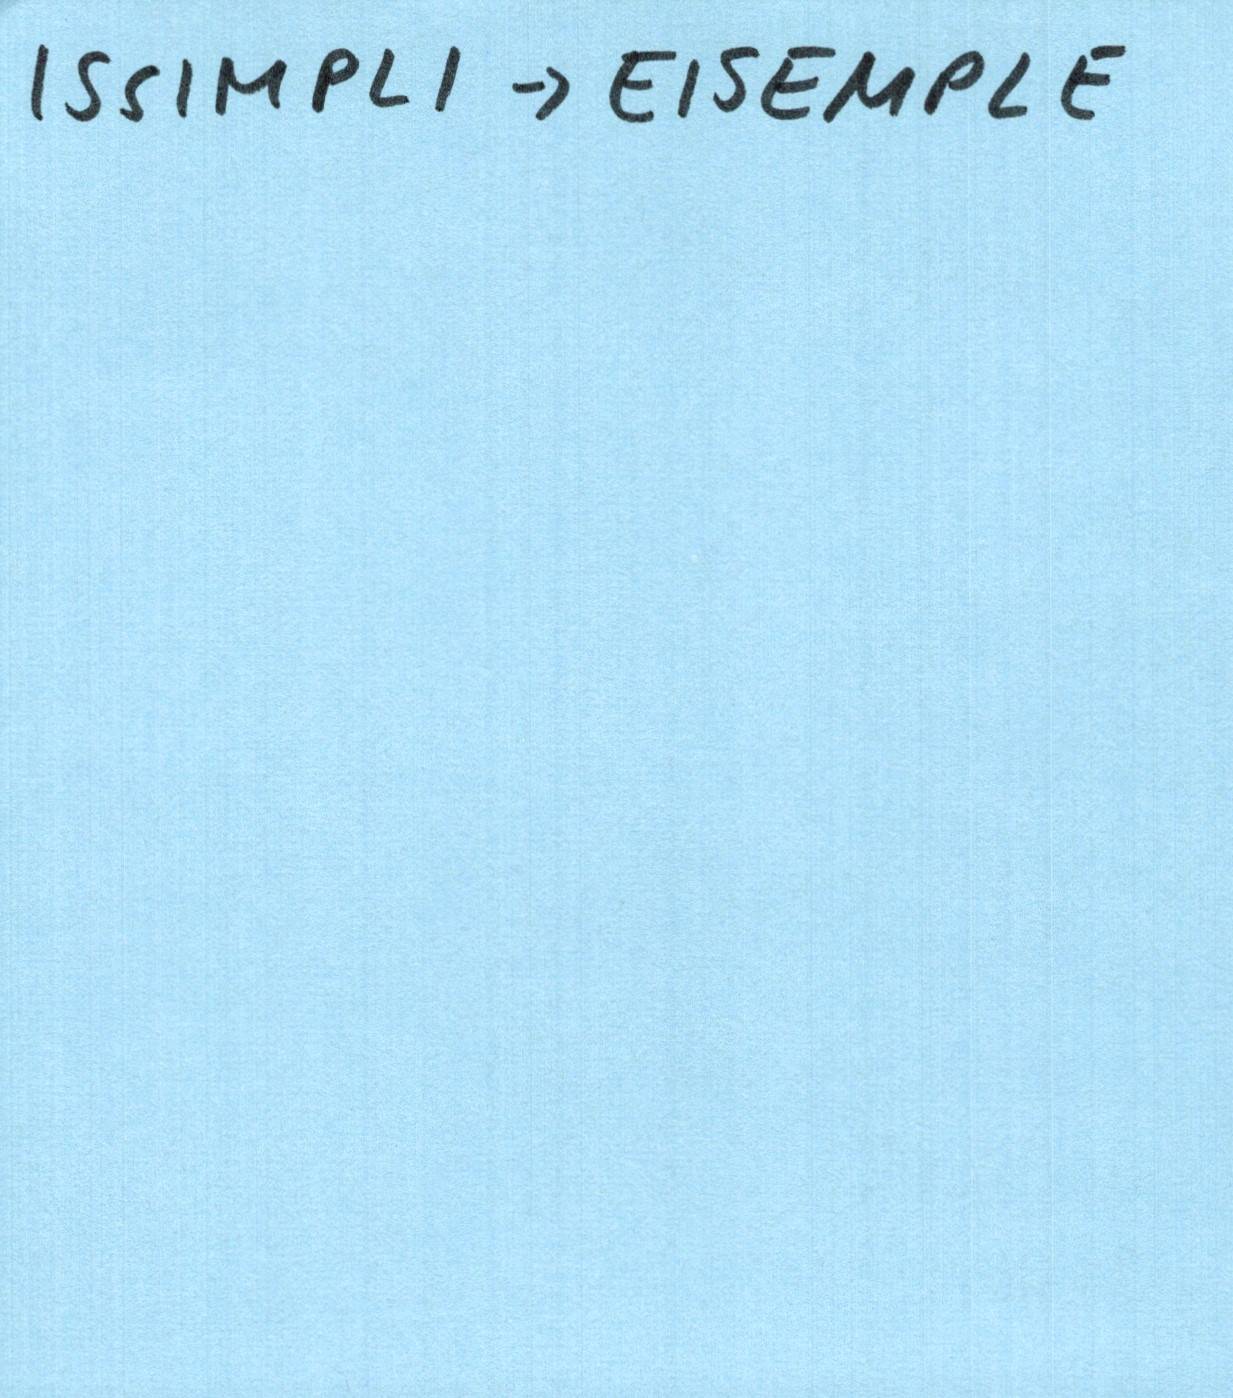 ISSIMPLI -> EISEMPLE